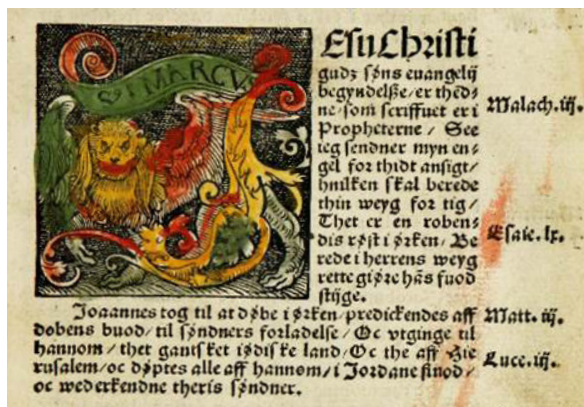 S. MARCVS
Esu Christi
gudz søns euangelij
begyndelße/er thēd=
ne/som scriffuet er i
Propheterne / See
ieg sendner myn en=
gel for thidt ansigt/
huilken skal berede
thin weyg for tig/
Thet er en roben=
dis røst i ørken/ Be
rede i herrens weyg
rette giøre hās fuod
stijge.
Malach. iij.
Esaie. lx.
Joaannes tog til at døbe i ørken/predickendes aff
dobens buod/ til søndners forladelse/ Oc vtginge til
hannom/ thet gantsket iødiske land/Oc the aff Hie
rusalem/oc døptes alle aff hannom/i Jordane flnod/
oc wederkendne theris søndner.
Matt. iij.
Luce. iij.